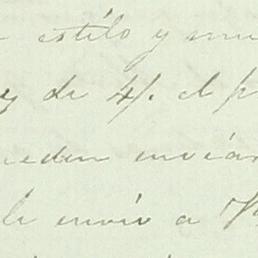 estilo y mu
y de 4/. el p
ueden enviar
le envio a V